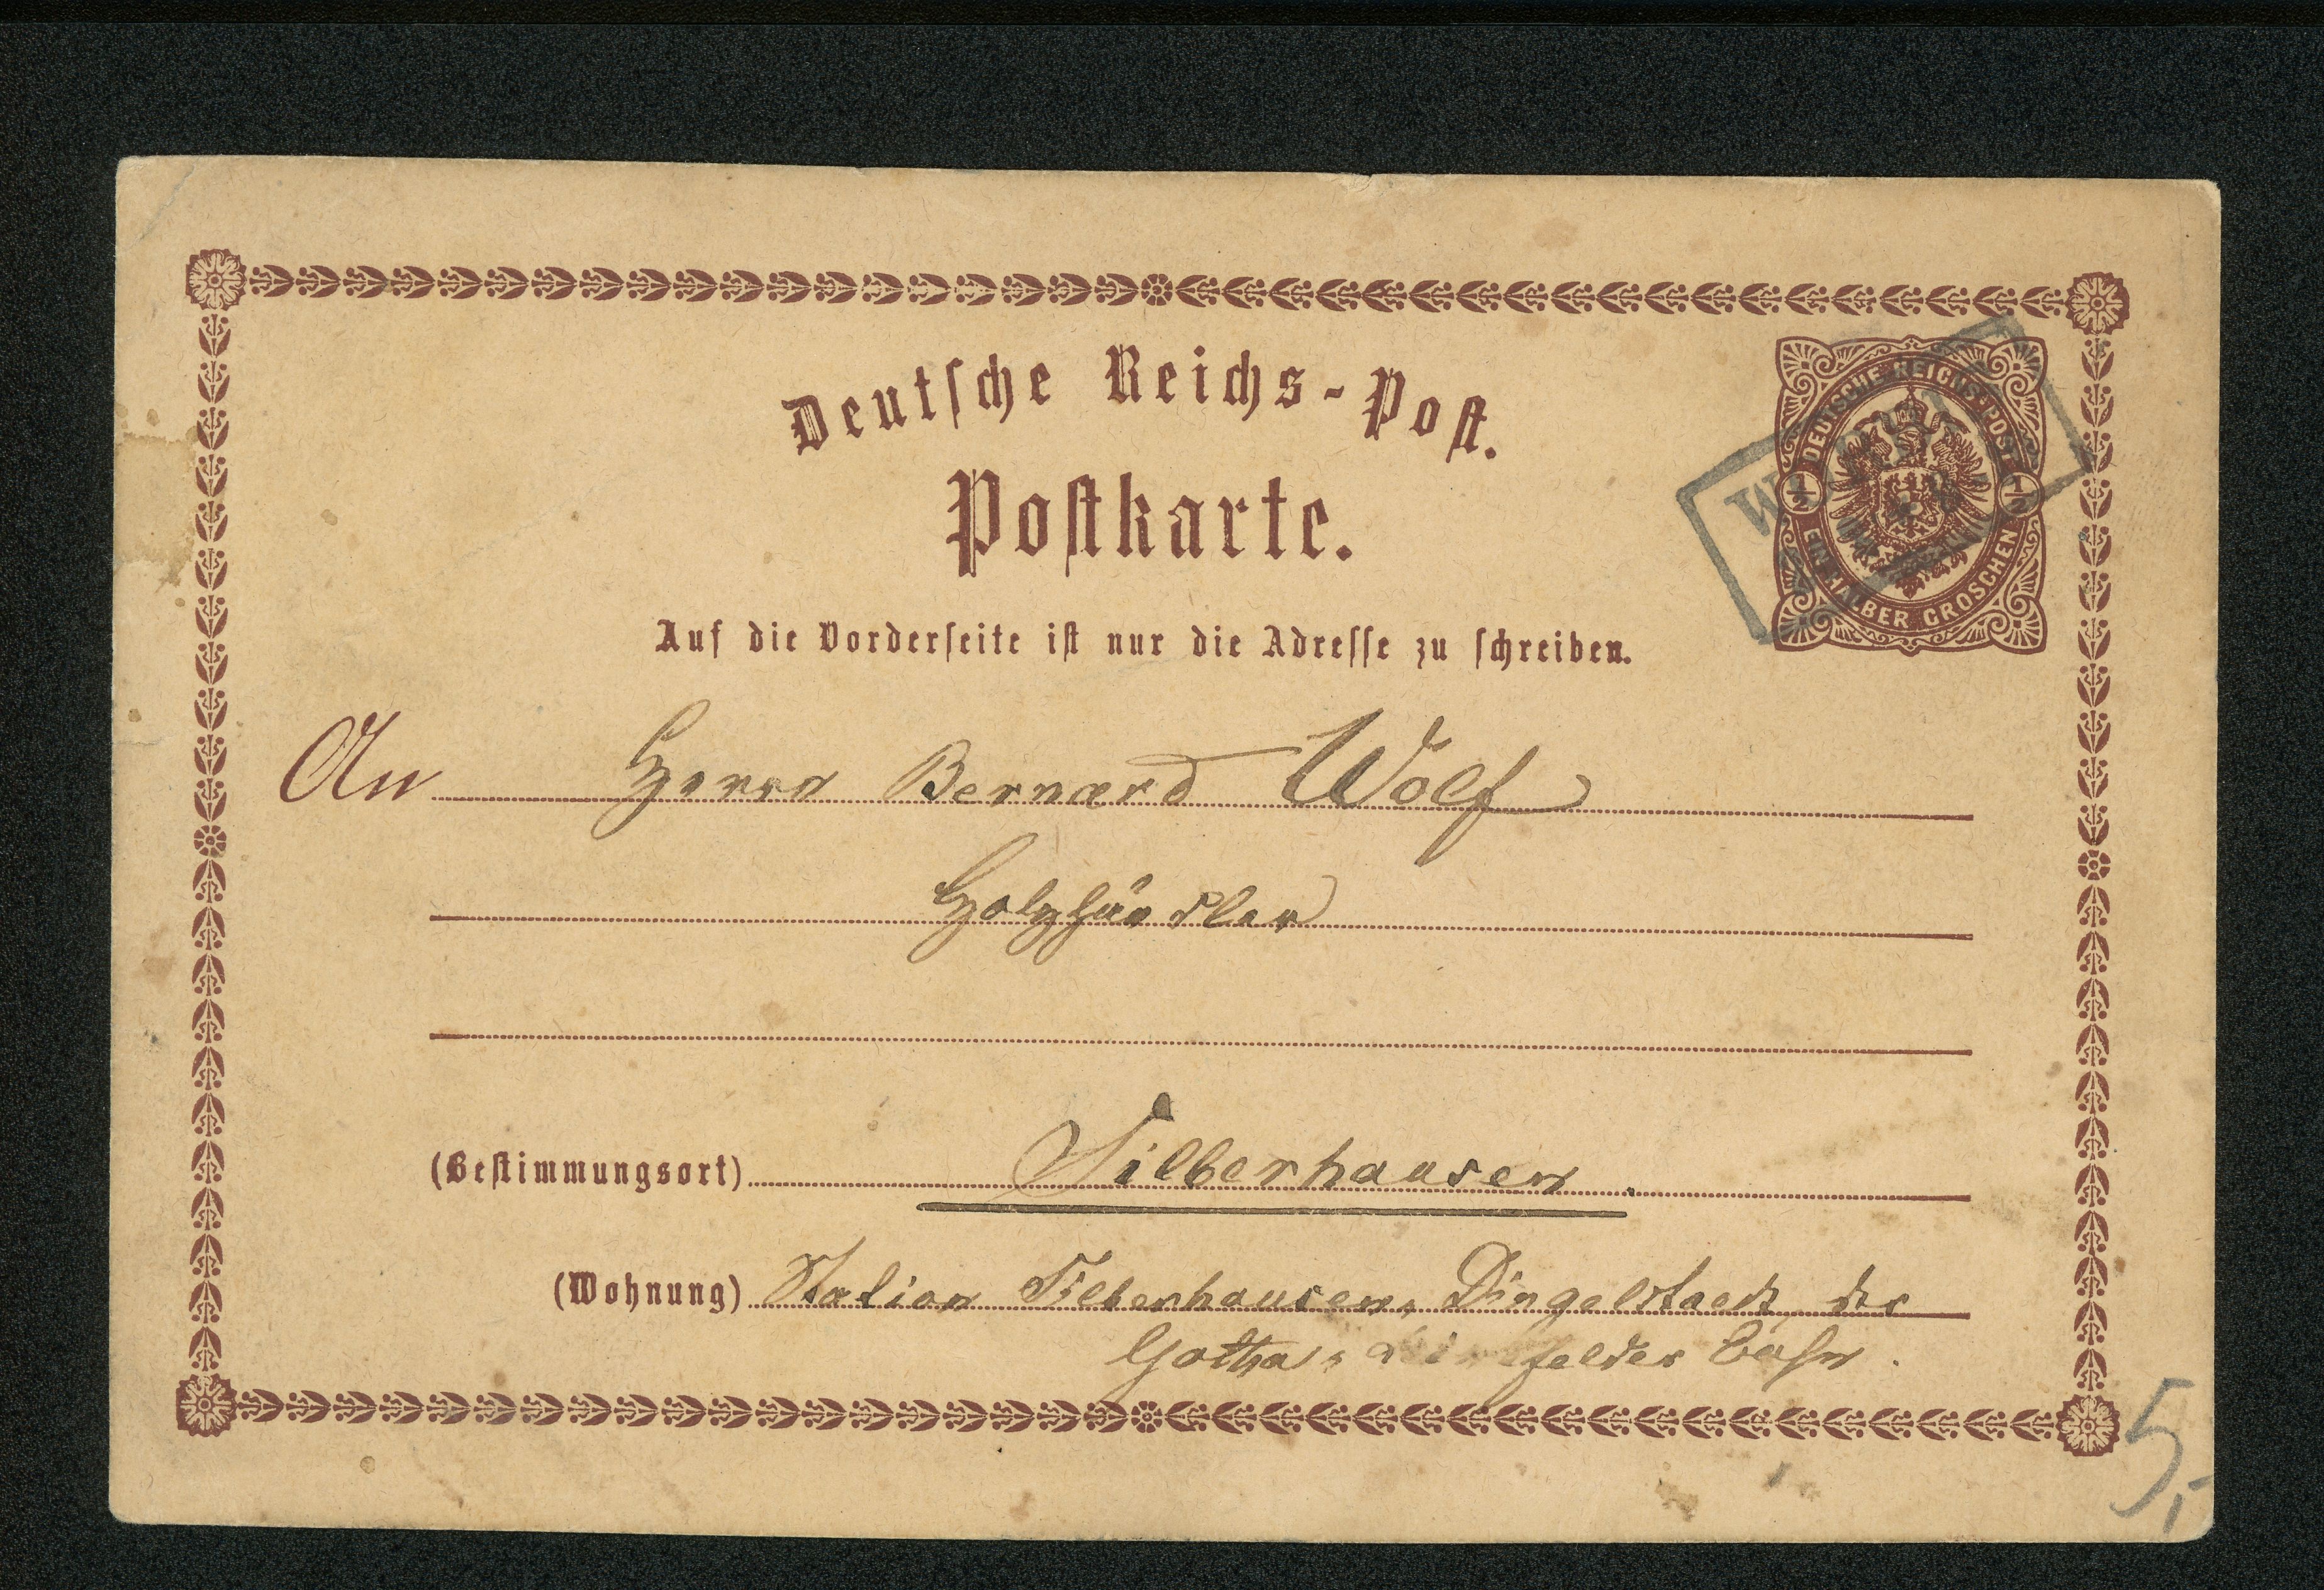 Deutsche Reichs-Post.
Postkarte.
DEUTSCHE REICHS-POST
1/2 1/2
EIN HALBER GROSCHEN
Auf die Vorderseite ist nur die Adresse zu schreiben.
An Herrn Bernard Wolf
Holzhändler
(Bestimmungsort) Silberhausen.
(Wohnung) Station Silberhausen, Dingelstaedt der
Gotha, felder Bahn.
5,-